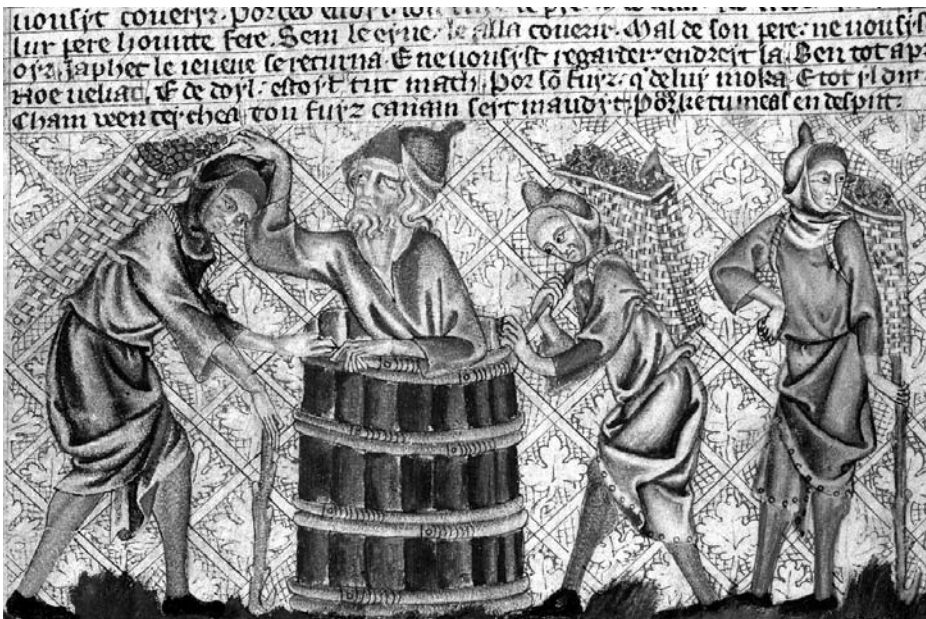 uousist couerir. Por ceo
lur pere hountte fere. Sem le eyne. le alla couerir. Mal de son pere. ne uousys
oyr. Japhet le ieuene se returna. E ne uousist regarder. endreit la. Ben tot apr
Noe ueliad. E de doyl. estoyt tut math. Por sõ fuyz. q' de luy moka. E tot yl
Cham wen tey chea, ton fuyz canaan seyt maudyt. Por ke tu me as en despitt: